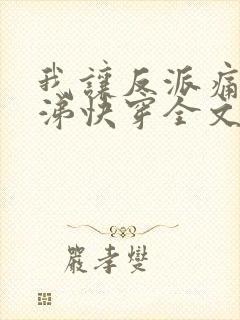 我讓反派痛
涕快穿全文
嚴孝燮